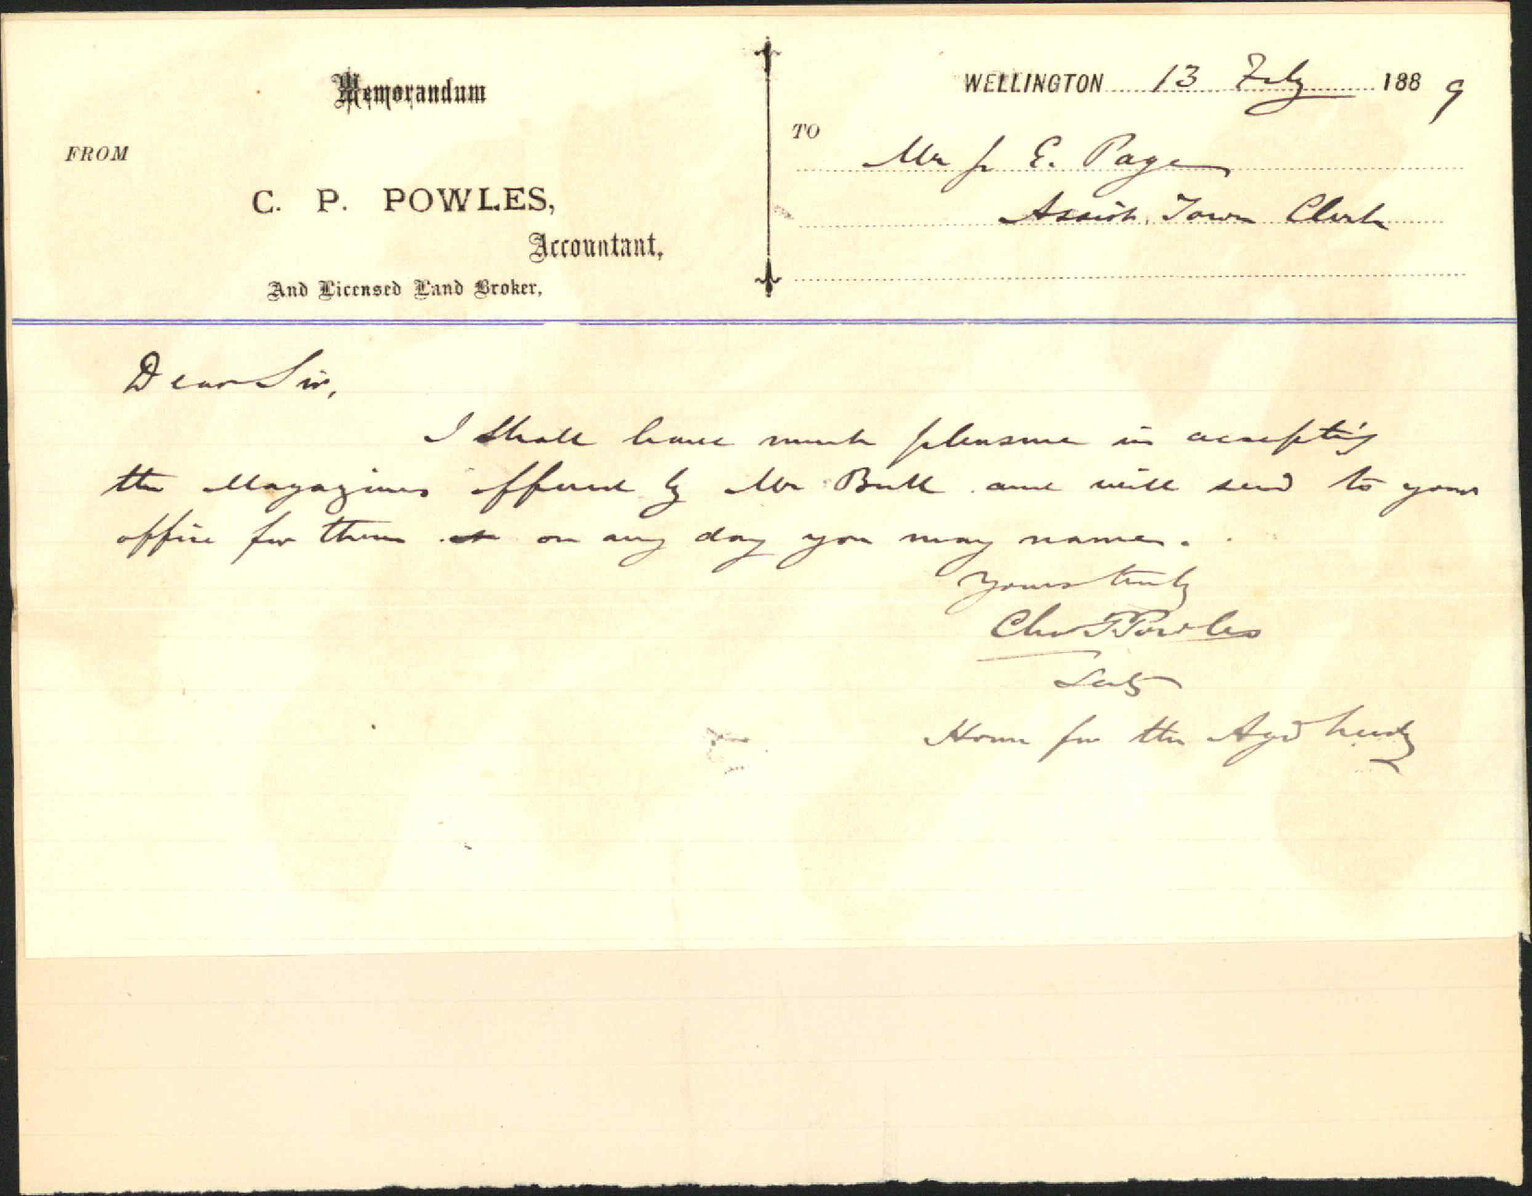 Memorandum
FROM
C. P. POWLES,
Accountant,
And Licensed Land Broker,
WELLINGTON 13 Feby 1889
TO
Mr J. E. Page
Assist. Town Clerk
Dear Sir,
I shall have much pleasure in accepting
the Magazines offered by Mr Bull and will send to your
office for them on any day you may name.
Yours truly
Chas P Powles
Secty
Home for the Aged Needy